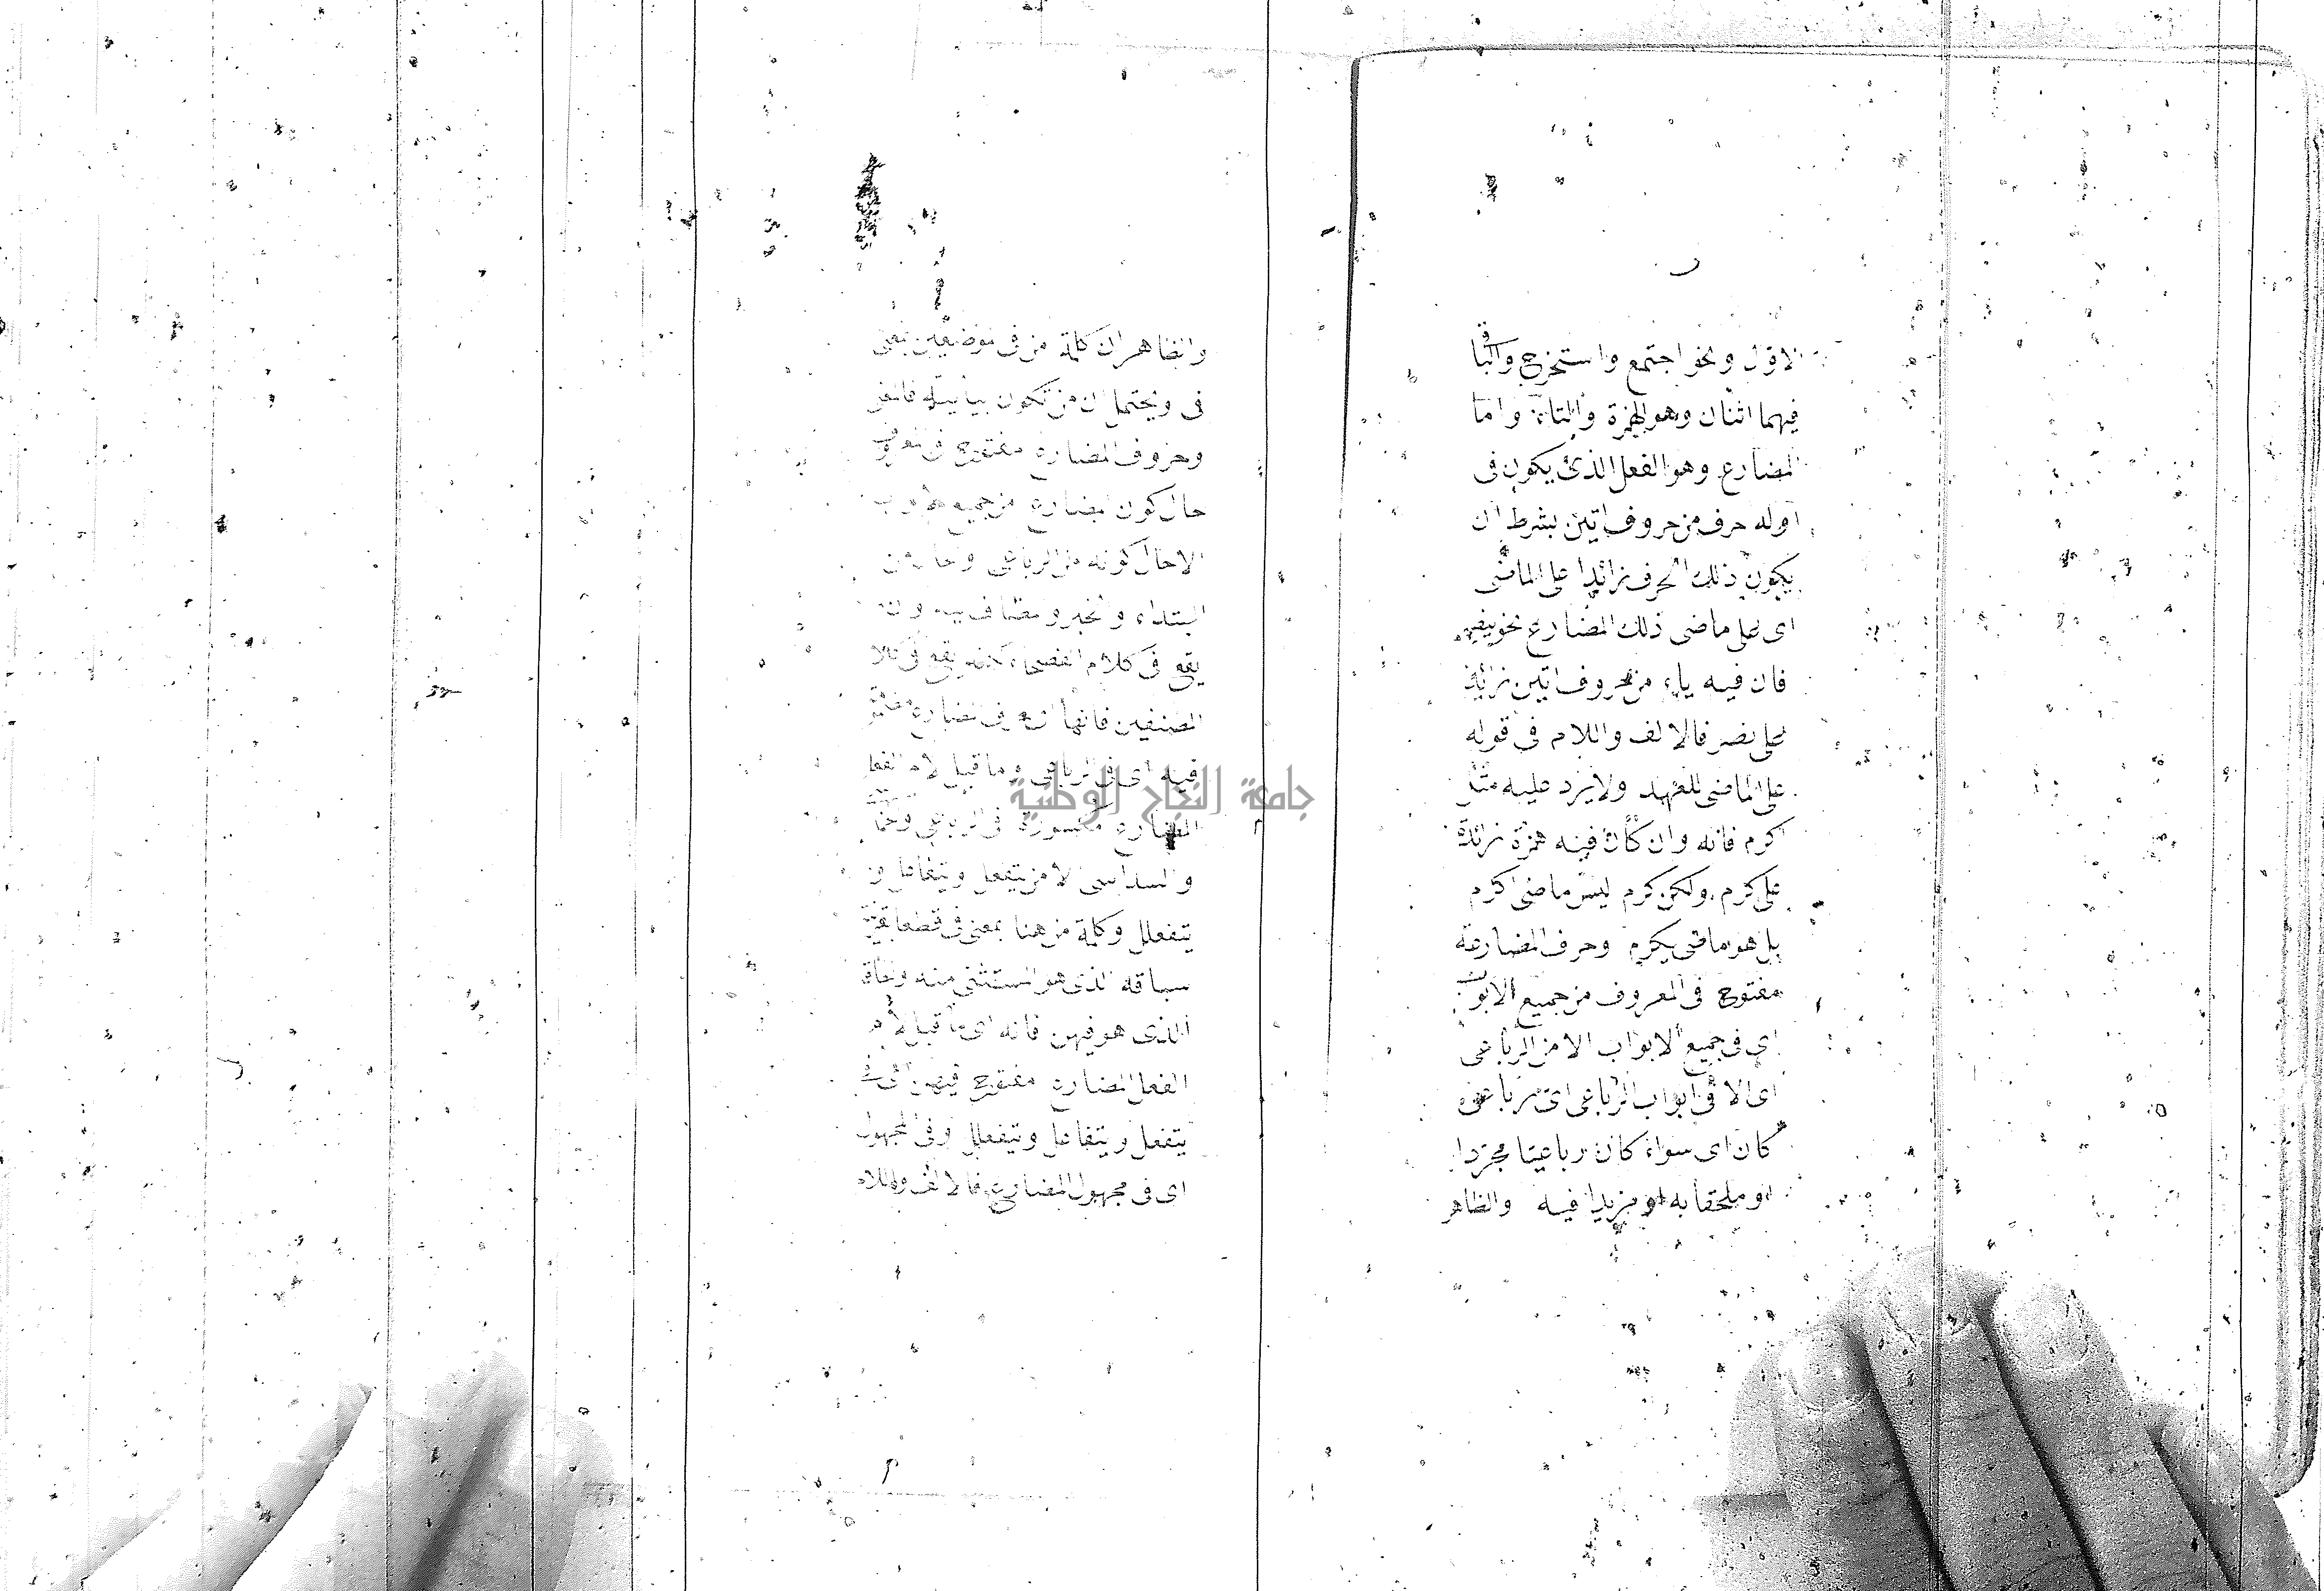 الاول ونحو اجتمع واستخرج والباقى
فيهما اثنان وهو الهمزة والتاء واما
المضارع وهو الفعل الذى يكون فى
اوله حرف من حروف اتين بشرط ان
يكون ذلك الحرف زائدا على الماضى
اى على ماضى ذلك المضارع نحو
فان فيه ياء من حروف اتين زائدة
على نصر فالالف واللام فى قوله
على الماضى للعهد ولا يرد عليه مثل
اكرم فانه وان كان فيه همزة زائدة
على كرم ولكن كرم ليس ماضى اكرم
بل هو ماضى يكرم وحرف المضارعة
مفتوح فى المعروف من جميع الابواب
اى فى جميع الابواب الا من الرباعى
اى الا فى ابواب الرباعى اى رباعى
كان اى سواء كان رباعيا مجردا
او ملحقا به او مزيدا فيه والظاهر
والظاهر ان كلمة من فى موضعين بمعنى
فى ويحتمل ان من تكون بيانية
وحروف المضارع مفتوح فى
حال كون المضارع من جميع
الا حال كونه من الرباعى
المبتداء والخبر ومضاف
يقع فى كلام الفصحاء يقع فى
المصنفين فى المضارع
فيه اى فى الرباعى وما قبل لام الفعل
المضارع مكسورة فى الرباعى
والسداسى الا من يتفعل ويتفاعل و
يتفعلل وكلمة من هنا بمعنى فى قطعا بقرينة
سباقه الذى هو المستثنى منه
الذى هو فيهن فانه اى ما قبل لام
الفعل المضارع مفتوح فيهن اى فى
يتفعل ويتفاعل ويتفعلل وفى المجهول
اى فى مجهول المضارع فالالف واللام
جامعة النجاح الوطنية